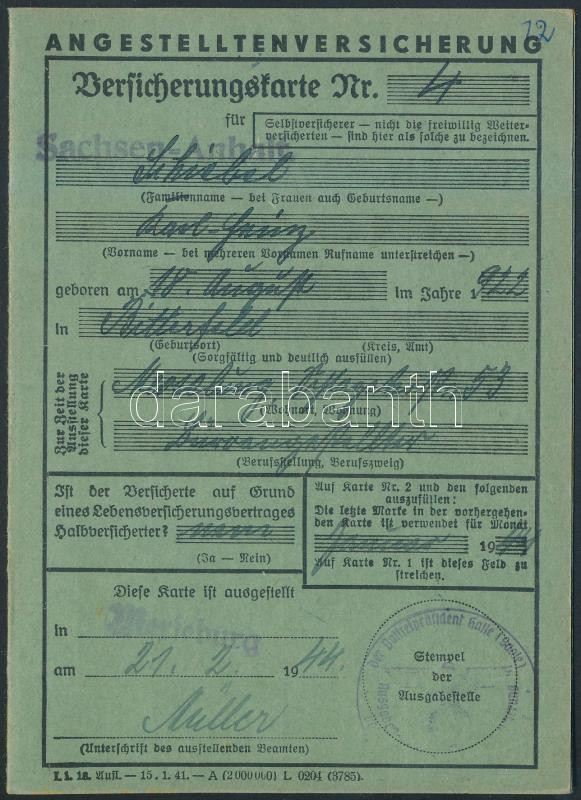 12
ANGESTELLTENVERSICHERUNG
Versicherungskarte Nr. 4
für
Selbstversicherer — nicht die freiwillig Weiter-
versicherten — sind hier als solche zu bezeichnen.
Sachsen-Anhalt
Schiebel
(Familienname — bei Frauen auch Geburtsname —)
Karl-Heinz
(Vorname — bei mehreren Vornamen Rufname unterstreichen —)
geboren am 10. August im Jahre 1922
in Bitterfeld
(Geburtsort) (Kreis, Amt)
(Sorgfältig und deutlich ausfüllen)
Zur Zeit der
Ausstellung
dieser Karte
Merseburg 53
(Wohnort, Wohnung)
darabanth
Büroangestellter
(Berufsstellung, Berufszweig)
Ist der Versicherte auf Grund
eines Lebensversicherungsvertrages
Halbversicherter? nein
(Ja — Nein)
Auf Karte Nr. 2 und den folgenden
auszufüllen:
Die letzte Marke in der vorhergehen-
den Karte ist verwendet für Monat
Januar 1944
Auf Karte Nr. 1 ist dieses Feld zu
streichen.
Diese Karte ist ausgestellt
in Merseburg
am 21. 2. 1944.
Müller
(Unterschrift des ausstellenden Beamten)
Der Polizeipräsident Halle (Saale)
Stempel
der
Ausgabestelle
I. i. 18. Aufl. — 15. 1. 41. — A (2 000 000) L 0204 (3785).